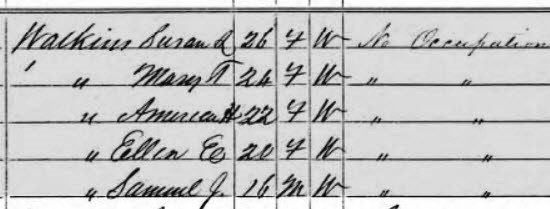 Watkins Susan R 26 F W No Occupation
" Mary T 24 F W " "
" America H 22 F W " "
" Ellen E 20 F W " "
" Samuel J 16 M W " "